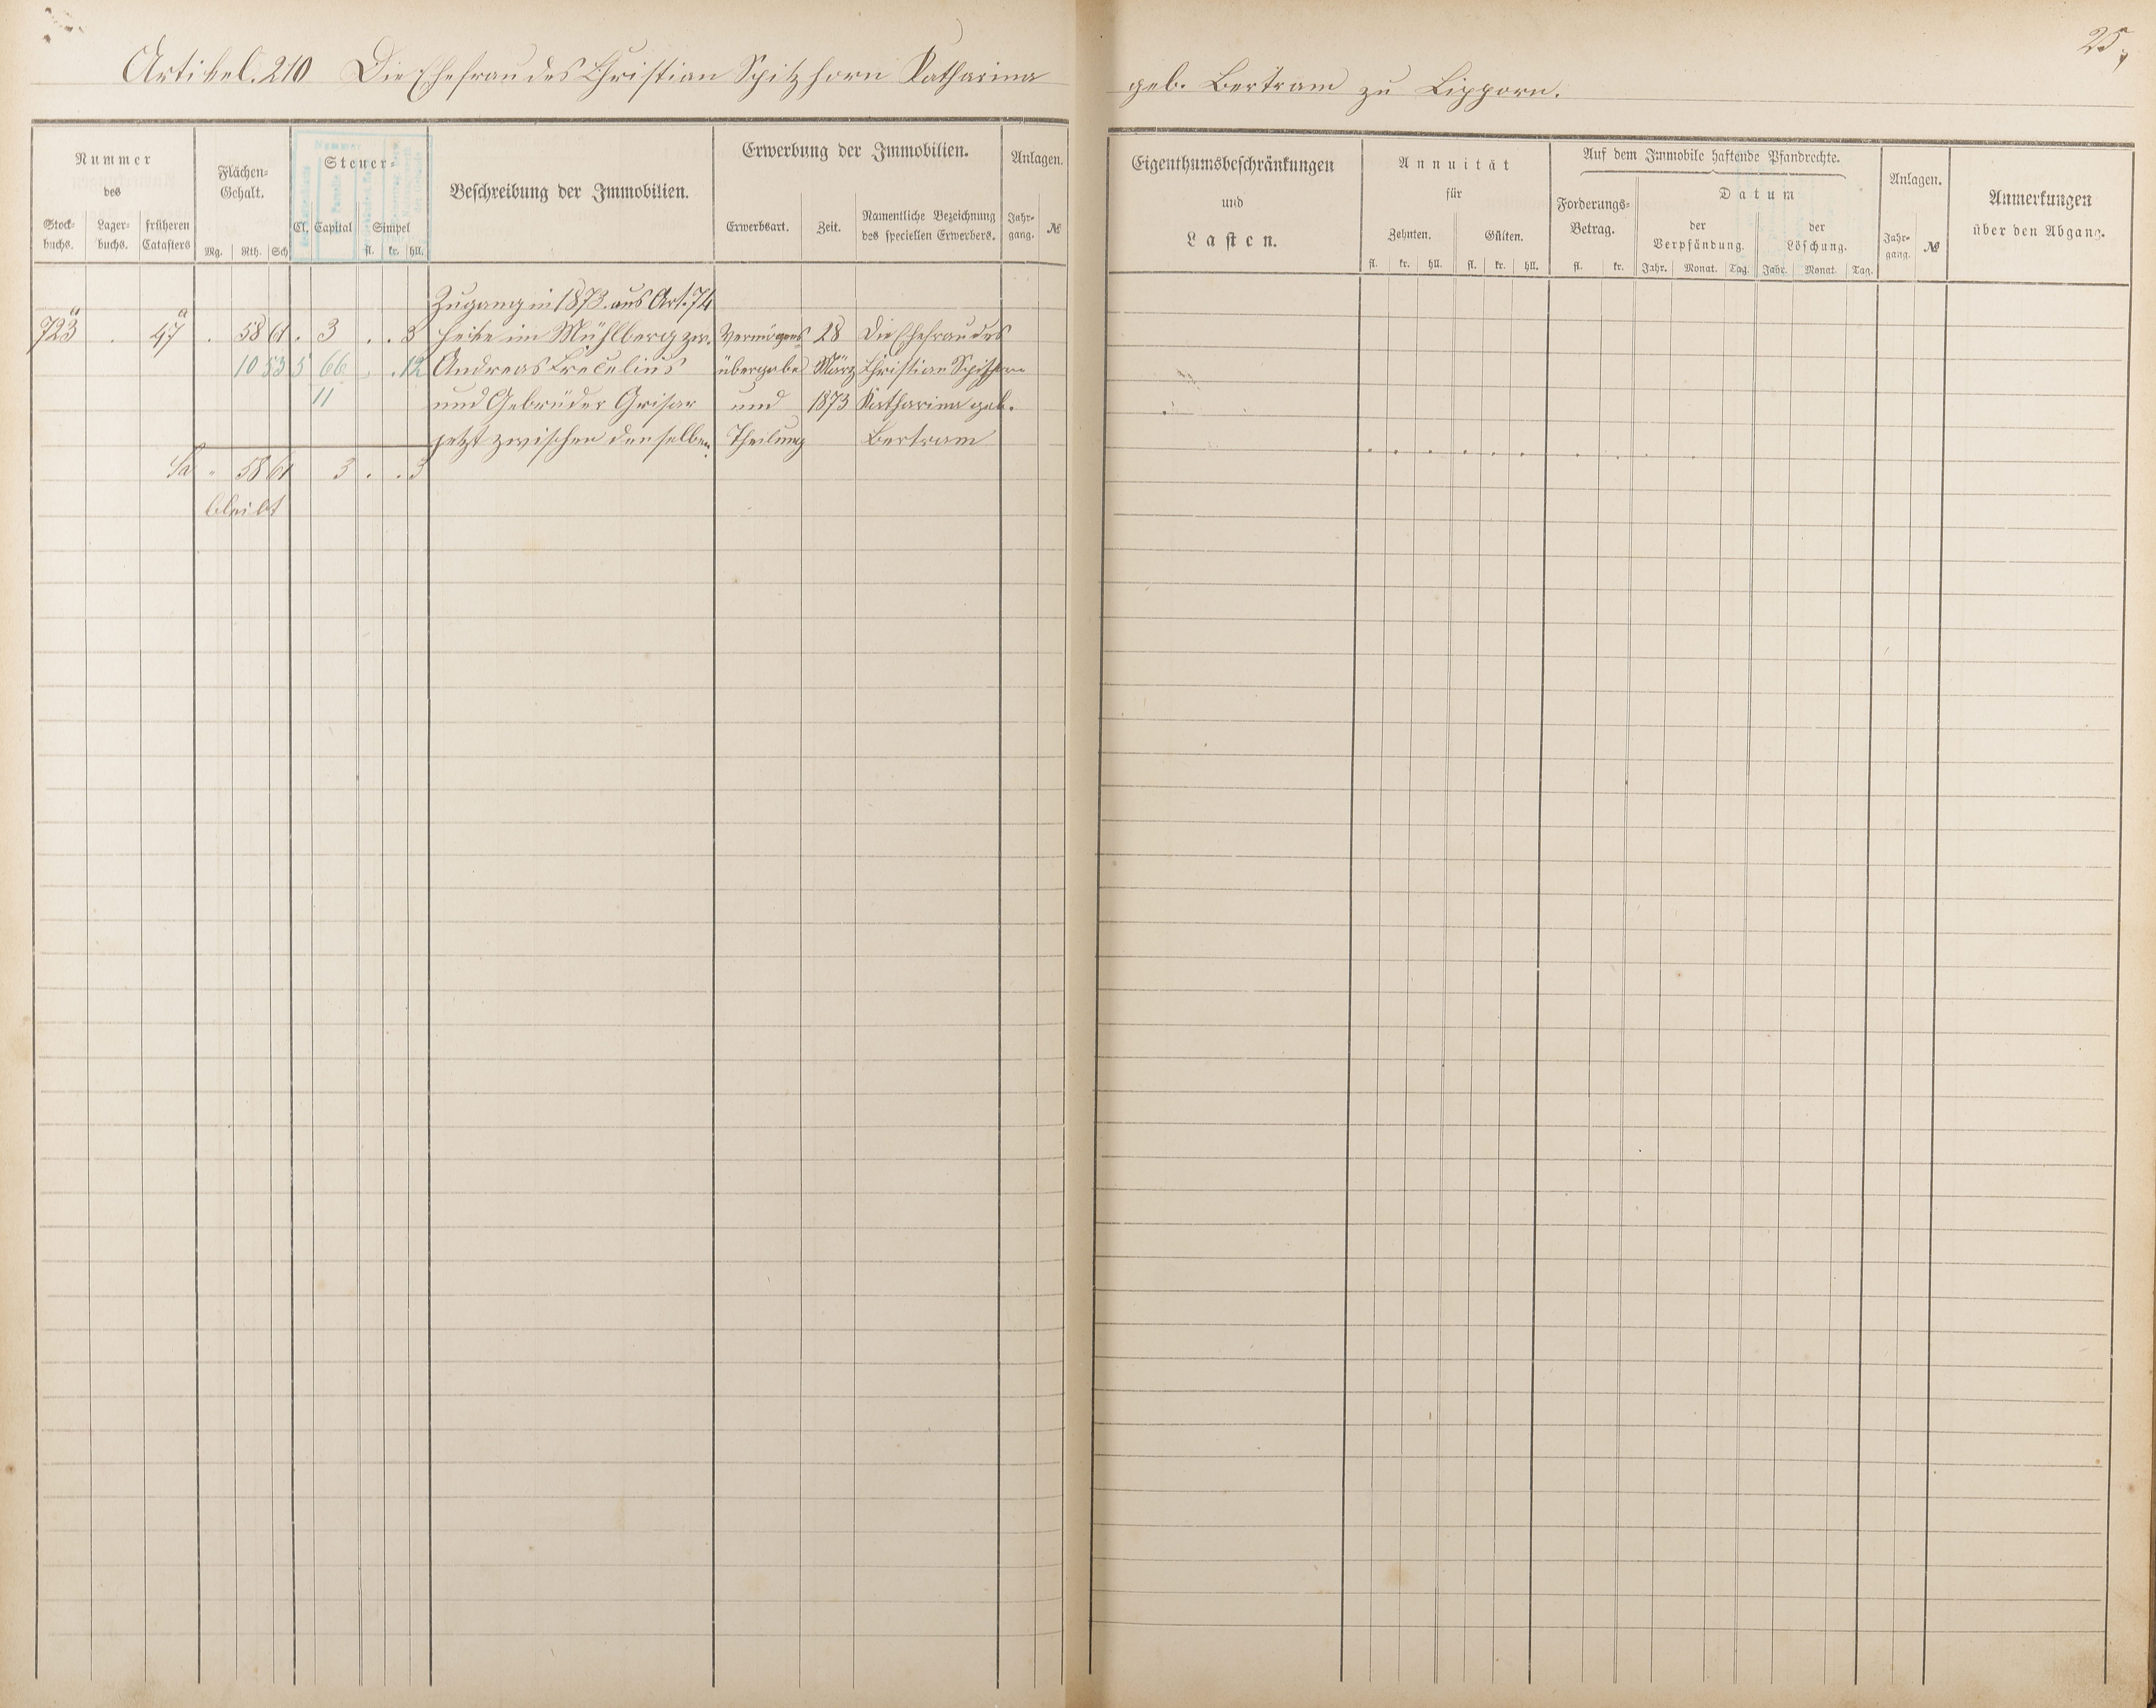 25
Artikel. 210 Die Ehefrau des Christian Spitzhorn Katharina geb. Bertram zu Lipporn.
Nummer
des
Stock-
buchs.
Lager-
buchs.
früheren
Catasters
Flächen-
Gehalt.
Mg. Rth. Sch
Steuer-
Nummer
Cl. Capital Simpel
fl. kr. hll.
Beschreibung der Immobilien.
Erwerbung der Immobilien.
Erwerbsart. Zeit.
Namentliche Bezeichnung
des speciellen Erwerbers.
Anlagen.
Jahr-
gang.
№
Eigenthumsbeschränkungen
und
Lasten.
Annuität
für
Zehnten. Gülten.
fl. kr. hll. fl. kr. hll.
Auf dem Immobile haftende Pfandrechte.
Forderungs-
Betrag.
fl. kr.
Datum
der
Verpfändung.
Jahr. Monat. Tag.
der
Löschung.
Jahr. Monat. Tag.
Anlagen.
Jahr-
gang.
№
Anmerkungen
über den Abgang.
Zugang in 1873. aus Art. 74
723a . 47a . 58 61 . 3 . . 3 Heike im Mühlberg zw. Vermögens 28 Die Ehefrau des
10 53 5 66 . . 12 Andreas übergabe März Christian Spitzhorn
11 und Gebrüder Grisar und 1873 Katharina geb.
jetzt zwischen denselben. Theilung Bertram
Sa . 58 61 3 . . 3
bleibt